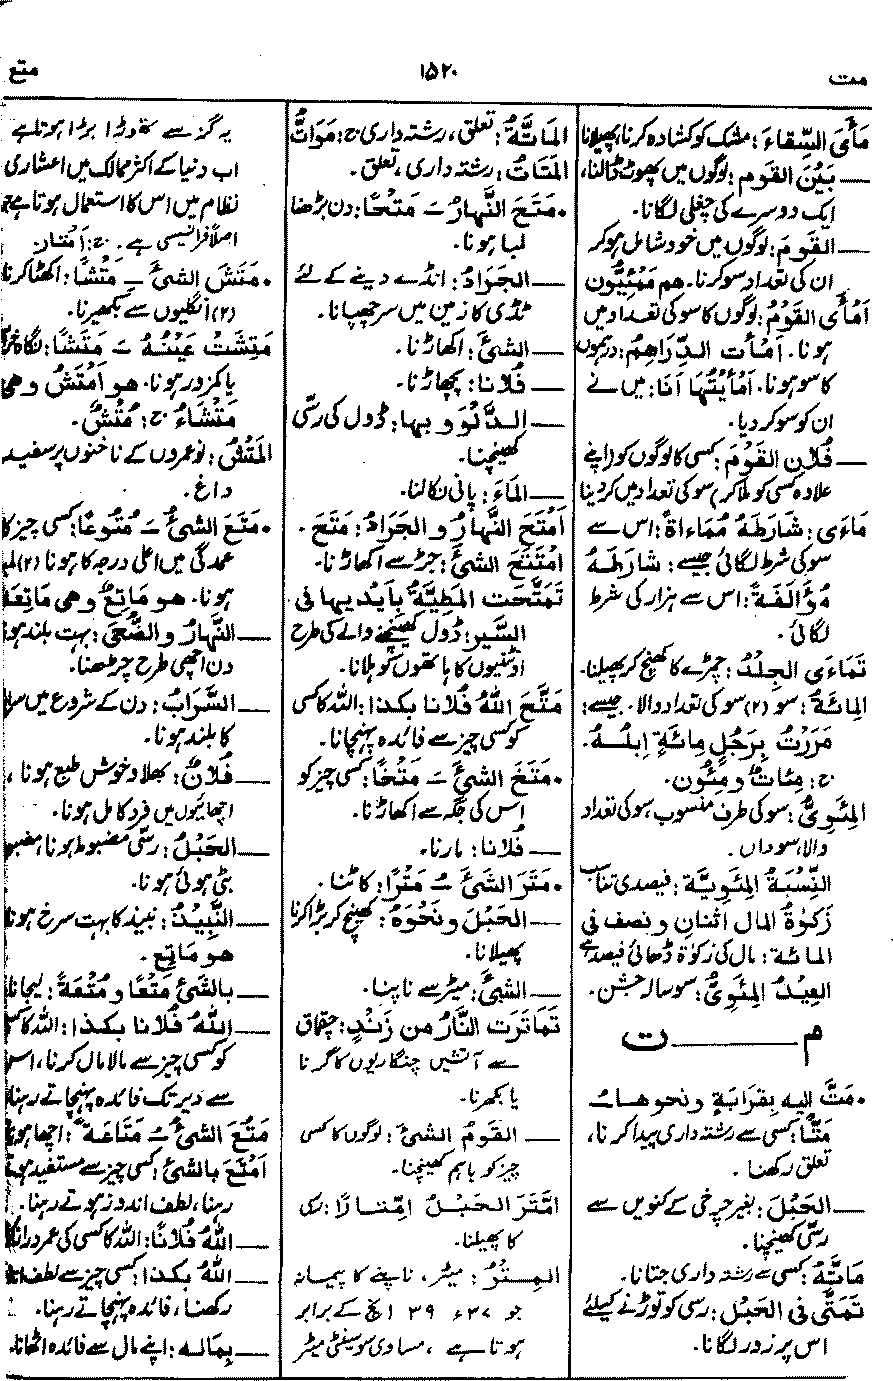 مت
۱۵۲۰
متع
مَأَی السِّقاءَ: مشک کو کشادہ کرنا، پھیلانا
— بَیْنَ القوم: لوگوں میں پھوٹ ڈالنا،
ایک دوسرے کی چغلی لگانا۔
— القومَ: لوگوں میں خود شامل ہو کر
ان کی تعداد سو کرنا۔ هم مَمْئِیُّون
اَمْأَی القومُ: لوگوں کا سو کی تعداد میں
ہونا۔ اَمْأَت الدِّرَاهِمُ: درہموں
کا سو ہونا۔ اَمْأَیْتُهَا اَنَا: میں نے
ان کو سو کر دیا۔
— فُلَان القَوْمَ: کسی کا لوگوں کو (اپنے
علاوہ کسی کو ملا کر) سو کی تعداد میں کر دینا
مَاءَی: شَارَطَهُ مُمَاءاةً: اس سے
سو کی شرط لگائی جیسے: شَارَطَهُ
مُؤَالَفَةً: اس سے ہزار کی شرط
لگائی۔
تَمَاءَی الجِلْدُ: چمڑے کا کھنچ کر پھیلنا۔
المِائَةُ: سو (۲) سو کی تعداد والا۔ جیسے:
مَرَرْتُ بِرَجُلٍ مِائَةٍ اِبِلُهُ۔
ج: مِئَاتٌ و مِئُون۔
المِئَوِیُّ: سو کی طرف منسوب، سو کی تعداد
والا، سوواں۔
النِّسْبَةُ المِئَوِیَّة: فیصدی تناسب
زَکٰوةُ المال اثنانِ و نصف فی
المائة: مال کی زکوٰۃ ڈھائی فیصد ہے
العِیْدُ المِئَوِیُّ: سو سالہ جشن۔
م ——— ت
• مَتَّ الیه بِقَرَابَةٍ ونحوها ـُـ
مَتًّا: کسی سے رشتہ داری پیدا کرنا،
تعلق رکھنا۔
— الحَبْلَ: بغیر چرخی کے کنویں سے
رسّی کھینچنا۔
مَاتَّهُ: کسی سے رشتہ داری جتانا۔
تَمَتَّی فی الحَبْل: رسی کو توڑنے کیلئے
اس پر زور لگانا۔
المَاتَّةُ: تعلق، رشتہ داری ج: مَوَاتُّ
المَتَاتُ: رشتہ داری، تعلق۔
• مَتَحَ النَّهارُ ـَـ مَتْحًا: دن بڑھنا
لمبا ہونا۔
— الجَرَادُ: انڈے دینے کے لئے
ٹڈی کا زمین میں سر چھپانا۔
— الشئَ: اکھاڑنا۔
— فُلَانا: پچھاڑنا۔
— الدَّلْوَ و بها: ڈول کی رسّی
کھینچنا۔
— الماءَ: پانی نکالنا۔
اَمْتَحَ النَّهارُ و الجَرَادُ: مَتَحَ۔
امْتَتَحَ الشئَ: جڑ سے اکھاڑنا۔
تَمَتَّحَت المَطِیَّةُ بِاَیْدیها فی
السَّیر: ڈول کھینچنے والے کی طرح
اونٹنیوں کا ہاتھوں کو ہلانا۔
مَتَّحَ اللّٰهُ فُلَانا بکذا: اللہ کا کسی
کو کسی چیز سے فائدہ پہنچانا۔
• مَتَخَ الشئَ ـَـ مَتْخًا: کسی چیز کو
اس کی جگہ سے اکھاڑنا۔
— فُلَانا: مارنا۔
• مَتَرَ الشئَ ـُـ مَتْرًا: کاٹنا۔
— الحَبْلَ و نَحْوَهُ: کھینچ کر بڑا کرنا
پھیلانا۔
— الشئَ: میٹر سے ناپنا۔
تَمَاتَرَت النَّارُ من زَنْدٍ: چقماق
سے آتشیں چنگاریوں کا گرنا
یا بکھرنا۔
— القومُ الشئَ: لوگوں کا کسی
چیز کو باہم کھینچنا۔
امَّتَرَ الحَبْلُ امِّتَارًا: رسی
کا پھیلنا۔
المِتْرُ: میٹر، ناپنے کا پیمانہ
جو ۳۷ء ۳۹ انچ کے برابر
ہوتا ہے، مساوی سو سینٹی میٹر
یہ گز سے تھوڑا بڑا ہوتا ہے
اب دنیا کے اکثر ممالک میں اعشاری
نظام میں اس کا استعمال ہوتا ہے
اصلاً فرانسیسی ہے۔ ج: اَمْتَار
• مَتَشَ الشئَ ـِـ مَتْشًا: اکٹھا کرنا
(۲) انگلیوں سے بکھیرنا۔
مَتِشَتْ عَیْنُهُ ـَـ مَتَشًا: نگاہ
یا کمزور ہونا۔ هو اَمْتَشُ و هی
مَتْشَاءُ ج: مُتْشٌ۔
المَتَشُ: نوعمروں کے ناخنوں پر سفید
داغ۔
• مَتَعَ الشئُ ـَـ مُتُوعًا: کسی چیز کا
عمدگی میں اعلی درجہ کا ہونا (۲) لمبا
ہونا۔ هو مَاتِعٌ و هی مَاتِعَة
— النَّهارُ و الضُّحَی: بہت بلند ہونا
دن اچھی طرح چڑھنا۔
— السَّرَابُ: دن کے شروع میں سراب
کا بلند ہونا۔
— فُلَانٌ: بھلا و خوش طبع ہونا،
اچھائیوں میں فرد کامل ہونا۔
— الحَبْلُ: رسّی مضبوط ہونا، مضبوط
بٹی ہوئی ہونا۔
— النَّبِیذُ: نبیذ کا بہت سرخ ہونا
هو مَاتِع۔
— بالشئِ مَتْعًا و مُتْعَةً: لیجانا
— اللّٰهُ فُلَانا بکذا: اللہ کا کسی
کو کسی چیز سے مالا مال کرنا، اس
سے دیر تک فائدہ پہنچاتے رہنا
مَتُعَ الشئُ ـُـ مَتَاعَةً: اچھا ہونا
اَمْتَعَ بالشئِ: کسی چیز سے مستفید ہوتے
رہنا، لطف اندوز ہوتے رہنا۔
— اللّٰهُ فُلَانًا: اللہ کا کسی کی عمر دراز
— اللّٰهُ بکذا: کسی چیز سے لطف اندوز
رکھنا، فائدہ پہنچاتے رہنا۔
— بِمَالِه: اپنے مال سے فائدہ اٹھانا۔